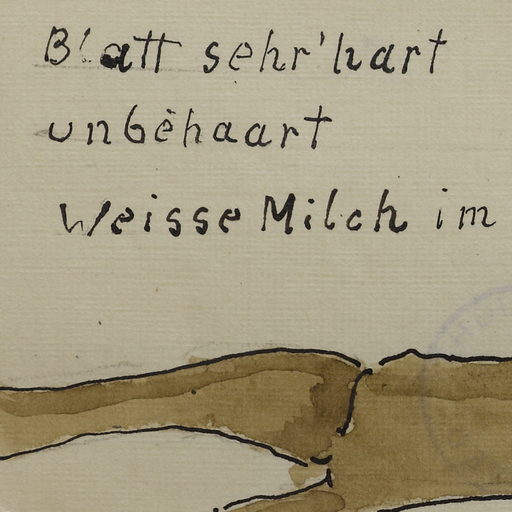 Blatt sehr hart
unbehaart
Weisse Milch im